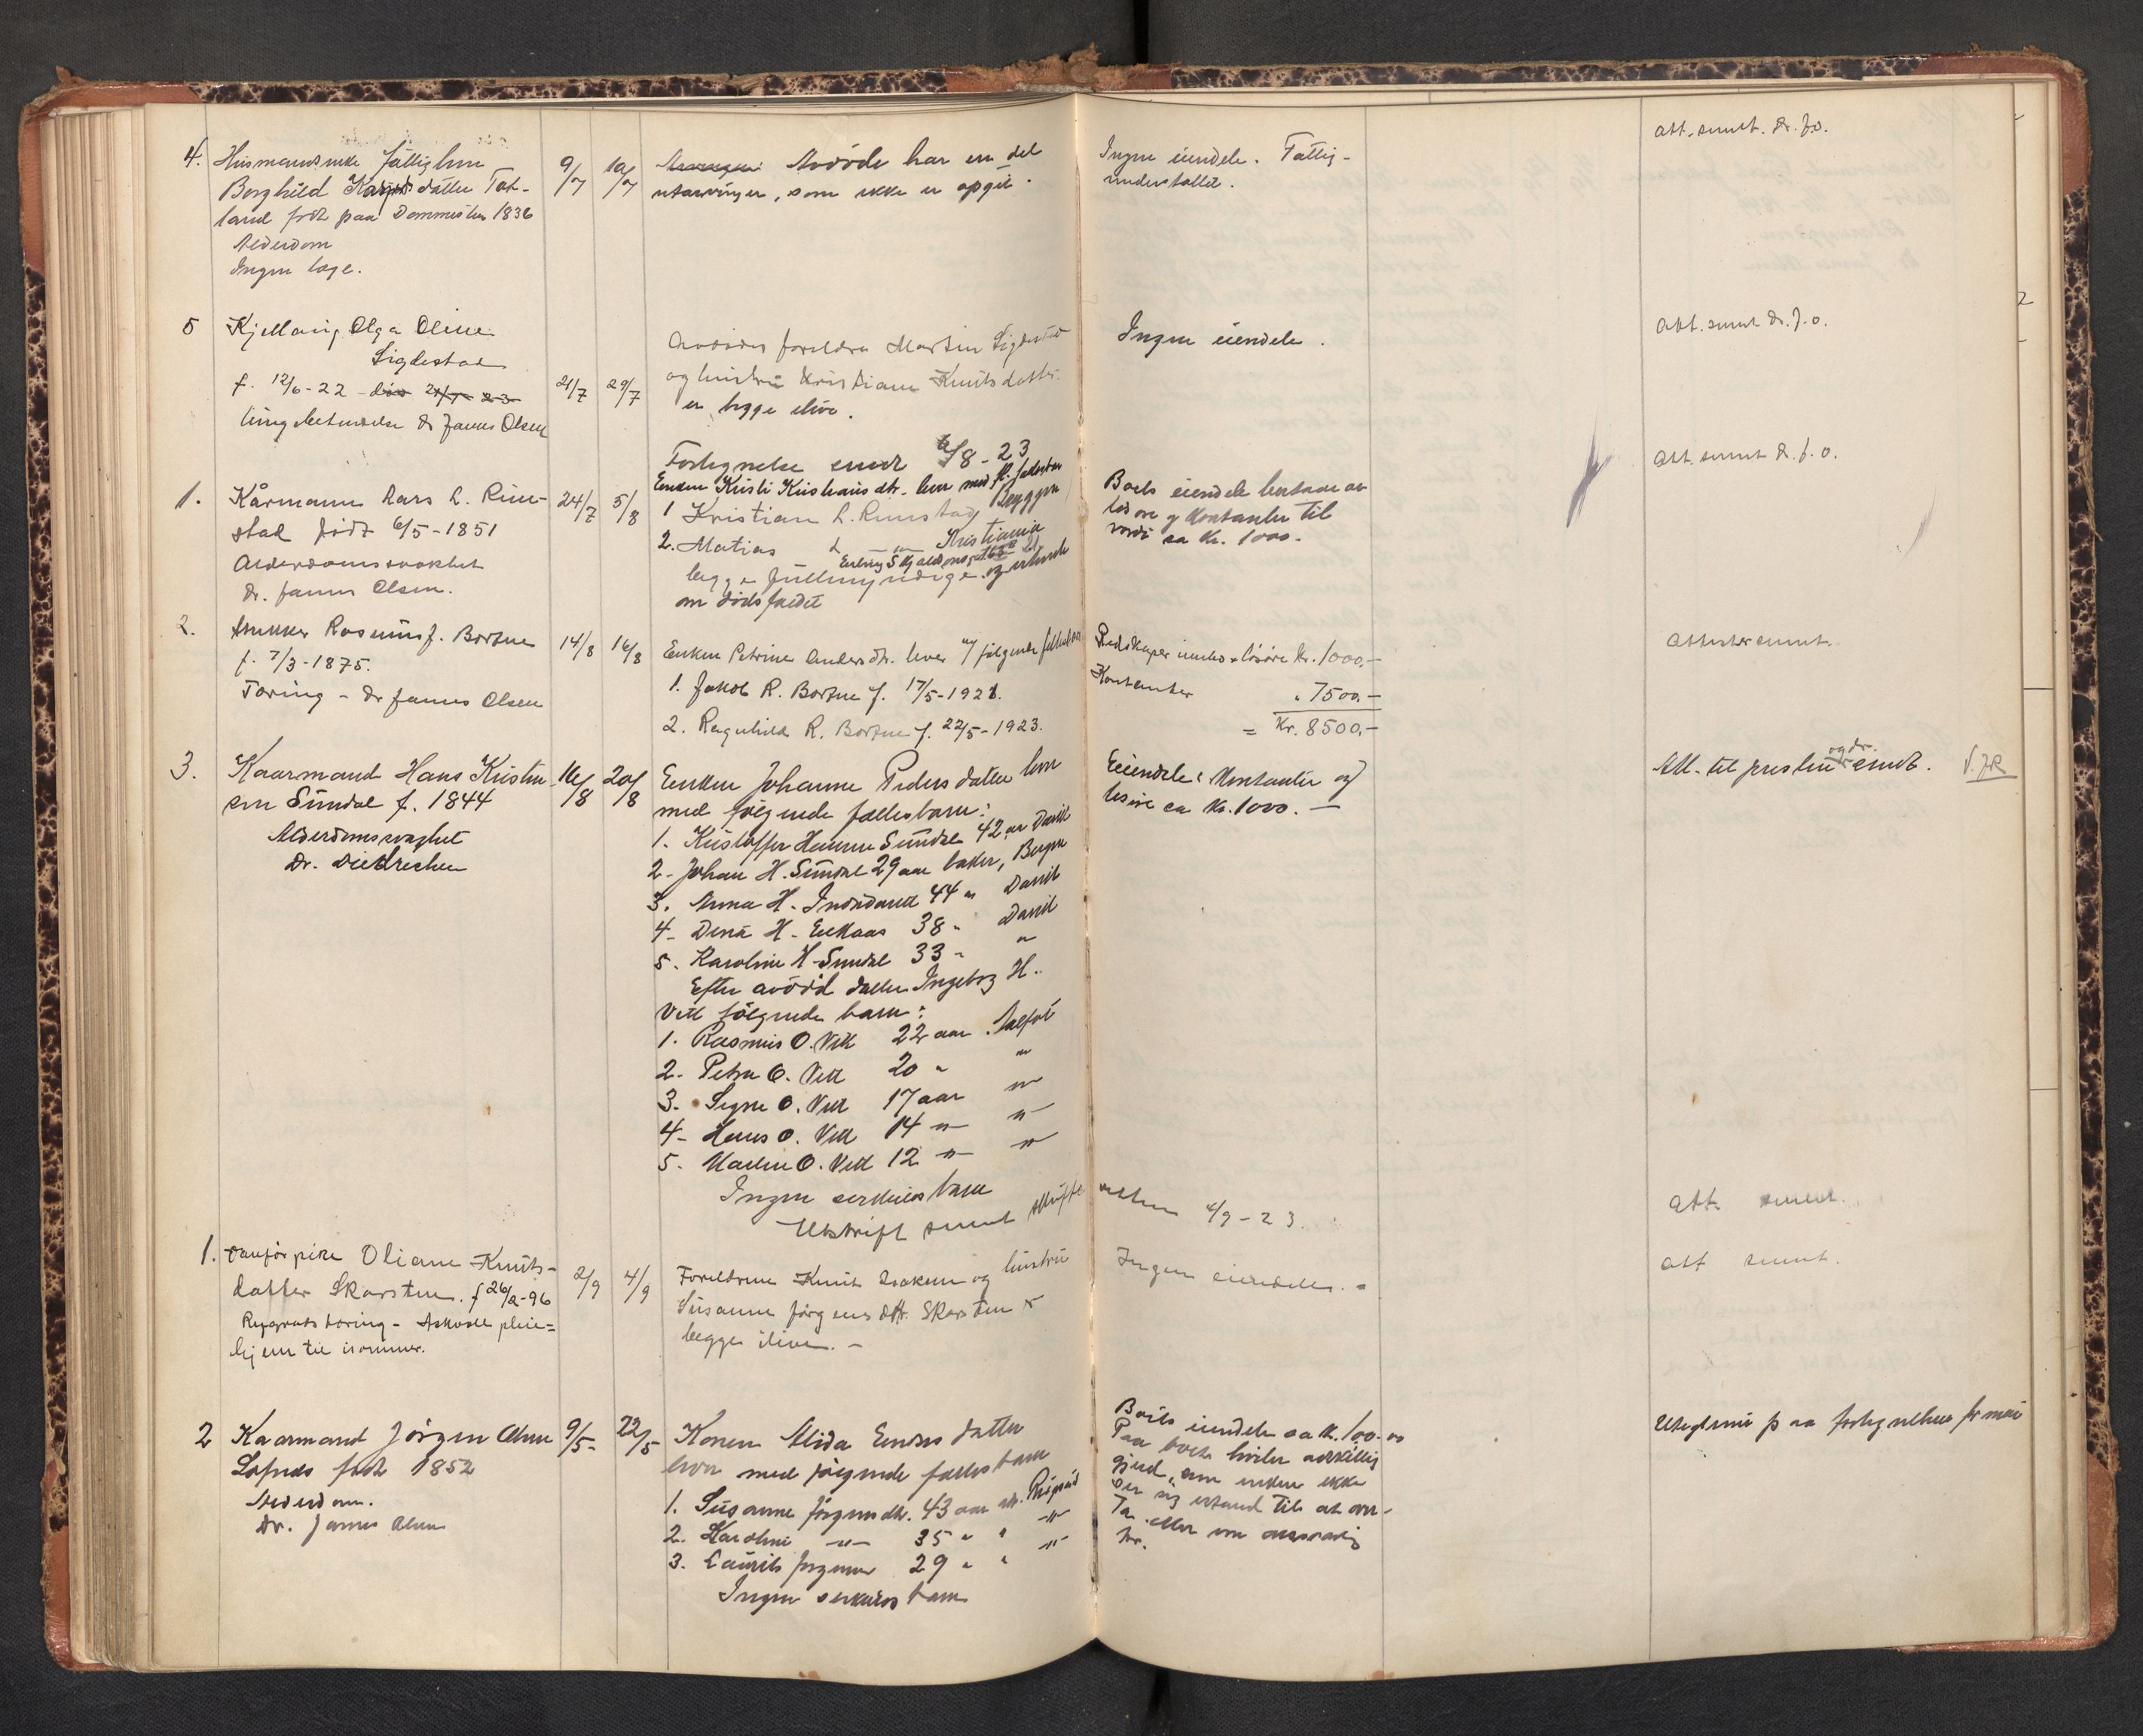 4. Husmandsenke fattiglem
Borghild datter Tat-
land født paa Dommesten 1836
Alderdom
Ingen læge.
9/7 10/7
Avdøde har en del
utarvinger, som ikke er opgit.
Ingen eiendele. Fattig-
understøttet.
Att. sendt. dr. J.O.
5 Olga Oline
Sigdestad
f. 12/6-22
dr James Olsen
21/7 29/7
Avdødes foreldre Martin Sigdestad
og hustru Kristiane Knutsdatter
er begge ilive.
Ingen eiendele.
Att. sendt dr. J.O.
Fortegnelse sendt 6/8-23
1. Kårmann Lars L. Rim-
stad født 6/5-1851
Alderdomssvakhet
dr. James Olsen.
24/7 5/8
Enken Kristi Kristiansdtr. lever med fl. fællesbarn
1 Kristian L. Rimstad
2. Matias L —"— Kristiania
begge fuldmyndige og
om dødsfaldet
Boets eiendele bestaar av
løsøre og kontanter til
værdi ca kr. 1000.-
Att. sendt d. J.O.
2. Rasmus J. Bortne
f. 7/3-1875.
Tæring - dr James Olsen
14/8 16/8
Enken Petrine Andersdtr. lever m/ følgende fellesbarn
1. Jakob R. Bortne f. 17/5-1921.
2. Ragnhild R. Bortne f. 22/5-1923.
Redskaper løsøre kr. 1000,-
Kontanter " 7500,-
= Kr. 8500,-
Attester sendt.
3. Kaarmand Hans Kristen-
sen Sundal f. 1844
Alderdomssvaghet
Dr. Diedrechen
16/8 20/8
Enken Johanne Pedersdatter lever
med følgende fællesbarn:
1. Kristoffer Hansen Sundal 42 aar Davik
2. Johan H. Sundal 29 aar baker, Bergen
3. Anna H. 44 " Davik
4. Dina H. 38 " Davik
5. Karoline H. Sundal 33 " "
Efter avdød datter Ingeborg H.
Vik følgende barn:
1. Rasmus O. Vik 22 aar. Aalfot
2. Petra O. Vik 20 " "
3. Signe O. Vik 17 aar "
4. Hans O. Vik 14 " "
5. Martin O. Vik 12 " "
Ingen særkuldsbarn
Utskrift sendt skifte
retten 4/9-23.
Eiendele: Kontanter og
løsøre ca kr. 1000. —
Att. til presten og dr. sendt.
Att. sendt.
1. Oliane Knuts-
datter Skarsten. f 26/2-96
Rygradstæring - Askvoll pleie=
hjem til isommer.
2/9 4/9
Foreldrene Knut Isaksen og hustru
Susanne Jørgensdtr. Skarsten er
begge ilive. —
Ingen eiendeler. -
att sendt.
2 Kaarmand Jørgen Olsen
født 1852
Alderdom.
Dr. James Olsen
9/5- 22/5
Konen Alida Endresdatter
lever med følgende fællesbarn
1. Susanne Jørgensdtr. 43 aar
2. Karoline —"— 35 " " —"—
3. Laurits Jørgensen 29 " " —"—
Ingen særkuldsbarn
Boets eiendele ca kr. 100.00
Paa boet hviler adskillig
gjæld, som enken ikke
ser sig istand til at over-
ta eller være ansvarlig
for.